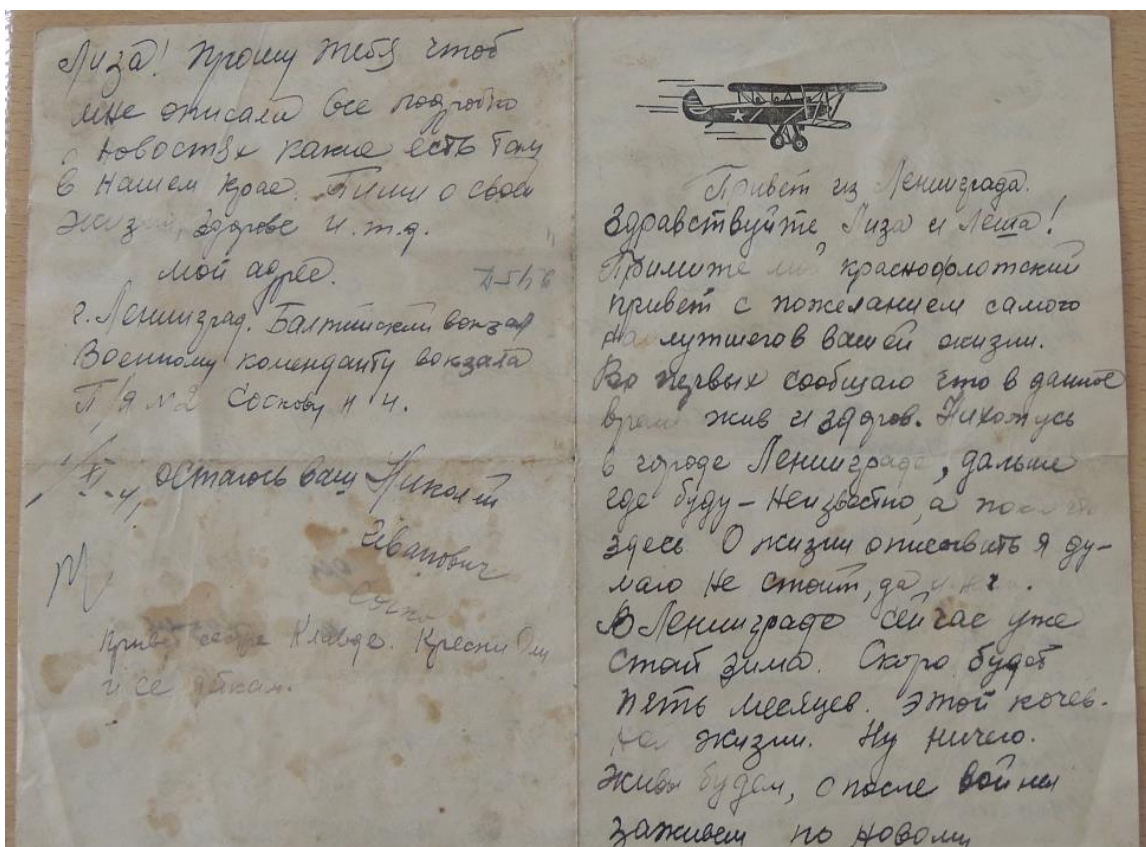 Лиза! Прошу тебя чтоб
мне описала все подробно
о новостях какие есть там
в нашем крае. Пиши о своей
жизни, здоровье и.т.д.
мой адрес.
г. Ленинград. Балтийский вокзал
Военному коменданту вокзала
П/я №2 Соскову Н И.
остаюсь ваш Николай
Иванович
Соско
Привет сестре Клавде. Крёсни Оли
и се
Привет из Ленинграда.
Здравствуйте Лиза и Лёша!
Примите мой краснофлотский
привет с пожеланием самого
наилучшего в вашей жизни.
Во первых сообщаю что в данное
время жив и здоров. Нахожусь
в городе Ленинграде, дальше
где буду – неизвестно, а пока
здесь О жизни описывать я ду-
маю не стоит, да
В Ленинграде сейчас уже
стоит зима. Скоро будет
пять месяцев. этой кочев-
ной жизни. Ну ничего.
Живы будем, а после войны
заживем по новому